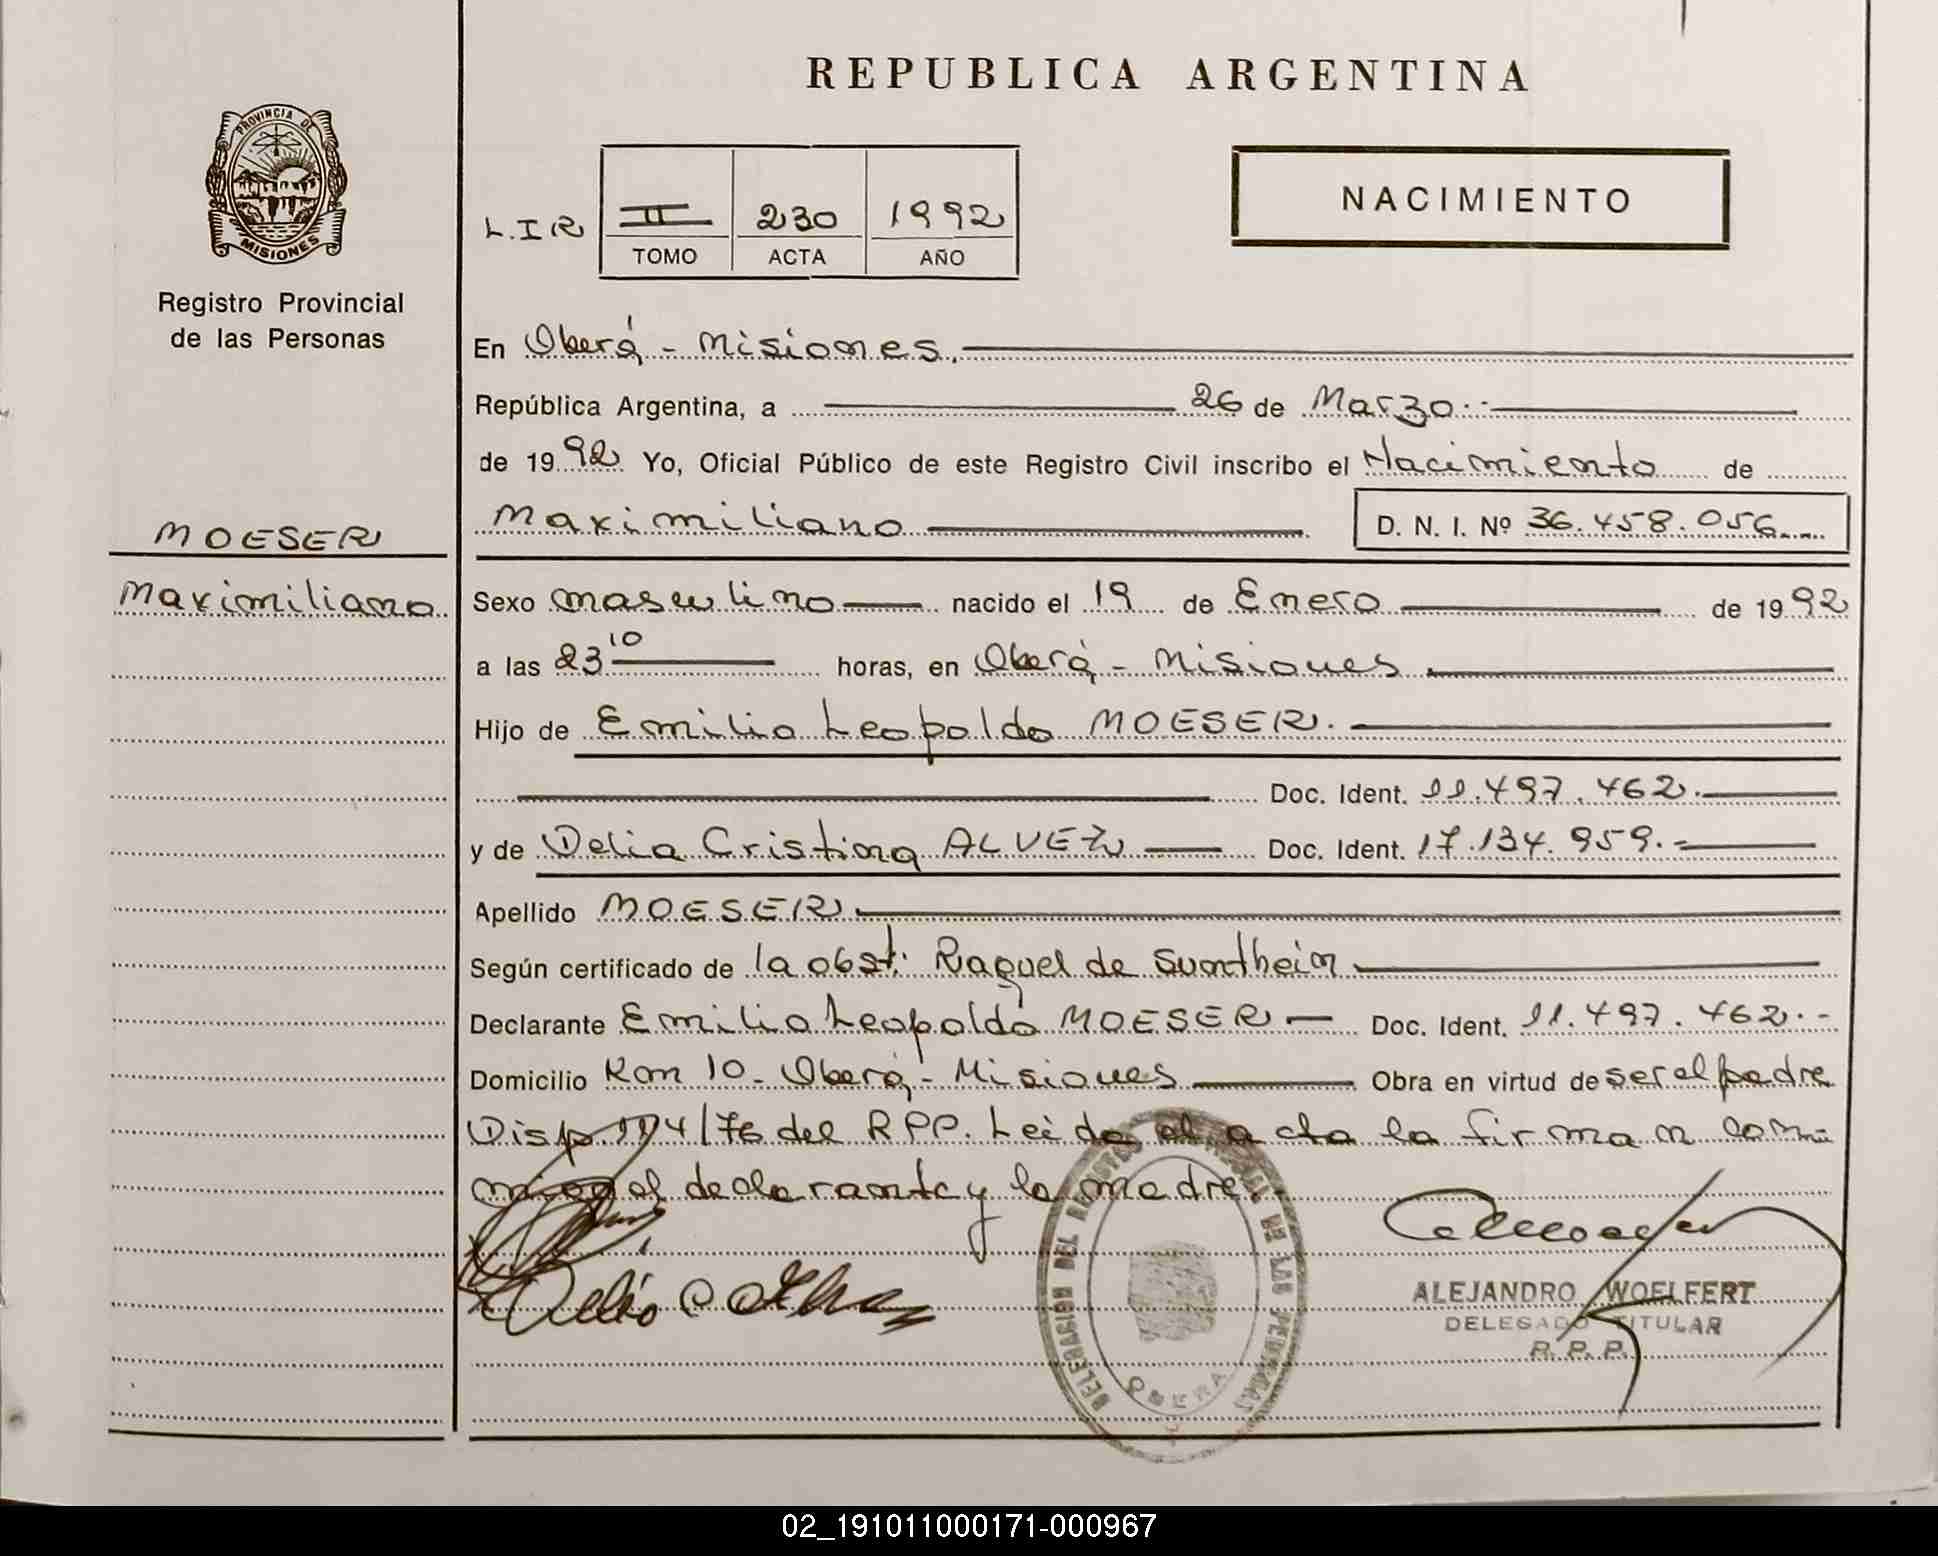 REPUBLICA ARGENTINA
PROVINCIA DE
MISIONES
Registro Provincial
de las Personas
L.I R
II 230 1992
TOMO ACTA AÑO
NACIMIENTO
En Oberá - Misiones.
República Argentina, a 26 de Marzo
de 1992 Yo, Oficial Público de este Registro Civil inscribo el Nacimiento de
Maximiliano D. N. I. Nº 36.458.056
MOESER
Maximiliano
Sexo masculino nacido el 19 de Enero de 1992
a las 23 10 horas, en Oberá - Misiones
Hijo de Emilio Leopoldo MOESER.
Doc. Ident. 11.497.462.
y de Delia Cristina ALVEZ Doc. Ident. 17.134.959.
Apellido MOESER
Según certificado de la obst. Raquel de Suntheim
Declarante Emilio Leopoldo MOESER Doc. Ident. 11.497.462.-
Domicilio Km 10 - Oberá - Misiones Obra en virtud de ser el padre
Disp. 114/76 del RPP. Leida el acta la firman con
migo el declarante y la madre.
DELEGACION DEL REGISTRO PROVINCIAL DE LAS PERSONAS
OBERA
ALEJANDRO WOELFERT
DELEGADO TITULAR
R. P. P.
02_191011000171-000967